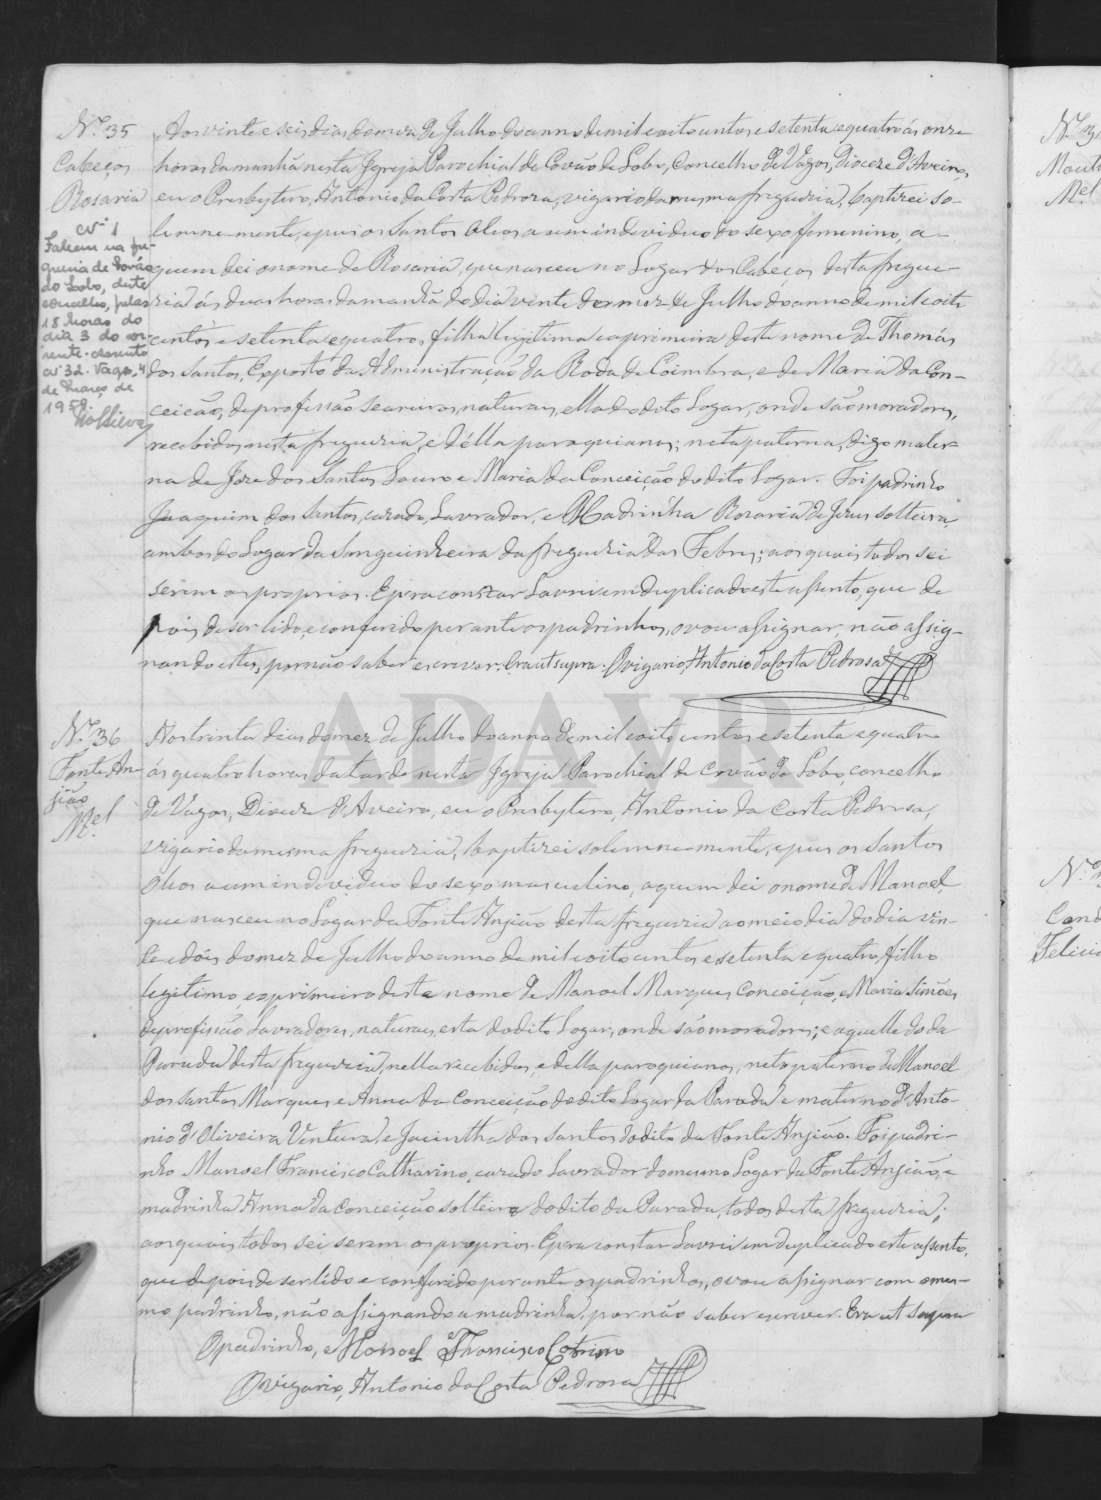 Nº 35
Cabeços
Rosaria
Nº 1
Faleceu na fre-
guesia de Covão
do Lobo, deste
concelho, pelas
18 horas do
dia 3 do cor-
rente. Assento
nº 32. Vagos, 4
de Março de
195
Aos vinte e seis dias do mez de Julho do anno de mil oito centos e setenta e quatro ás onze
horas da manhã nesta Igreja Parochial de Covão do Lobo, Concelho de Vagos, Diocese d'Aveiro,
eu o Presbytero, Antonio da Costa Pedrosa, vigario da mesma freguezia, baptizei so-
lemne-mente, e puz os Santos Oleos a um individuo do sexo femenino, a
quem dei o nome de Rosaria, que nasceu no Logar dos Cabeços desta fregue-
zia ás duas horas da manhã do dia vinte do mez de Julho do anno de mil oito
centos e setenta e quatro, filha legitima e a primeira deste nome de Thomás
dos Santos, Exposto da Administração da Roda de Coimbra, e de Maria da Con-
ceição, de profissão seareiros, naturaes, ella do dito Logar, onde são moradores,
recebidos nesta freguezia, e della paroquianos; neta paterna, digo mater-
na de Joze dos Santos Louro e Maria da Conceição do dito Logar. Foi padrinho
Joaquim dos Santos, cazado, Lavrador, e Madrinha Rosaria de Jesus solteira
ambos do Logar da Sanguinheira da freguezia das Febres; aos quais todos sei
serem os proprios. E para constar Lavrei em duplicado este assento, que de
pois de ser lido, e conferido perante os padrinhos, o vou assignar, não assig-
nando estes, por não saber escrever. Era ut supra. O vigario, Antonio da Costa Pedrosa
ADAVR
Nº 36
Fonte An-
jião
Mel
Aos trinta dias do mez de Julho do anno de mil oito centos e setenta e quatro
ás quatro horas da tarde nesta Igreja Parochial de Covão do Lobo, concelho
de Vagos, Diocese d'Aveiro, eu o Presbytero, Antonio da Costa Pedrosa,
vigario da mesma freguezia, baptizei solemne-mente, e puz os Santos
Oleos a um individuo do sexo masculino, a quem dei o nome de Manoel,
que nasceu no Logar da Fonte Anjião desta freguezia ao meio dia do dia vin-
te e dois do mez de Julho do anno de mil oito centos e setenta e quatro, filho
legitimo e o primeiro deste nome de Manoel Marques Conceição, e Maria Simões
de profissão Lavradores, naturaes, esta do dito Logar, onde são moradores; e aquelle do da
Parada desta freguezia, nella recebidos, e della paroquianos, neto paterno de Manoel
dos Santos Marques e Anna da Conceição do dito Logar da Parada e materno d'Anto-
nio d'Oliveira Ventura e Jacintha dos Santos do dito da Fonte Anjião. Foi padri-
nho Manoel Francisco Catharino, cazado Lavrador do mesmo Logar da Fonte Anjião, e
madrinha Anna da Conceição solteira do dito da Parada, todos desta freguezia;
aos quais todos sei serem os proprios. E para constar Lavrei em duplicado este assento,
que depois de ser lido e conferido perante os padrinhos, o vou assignar com o mes-
mo padrinho, não assignando a madrinha, por não saber escrever. Era ut supra
O padrinho, Manoel Francisco
O vigario, Antonio da Costa Pedrosa